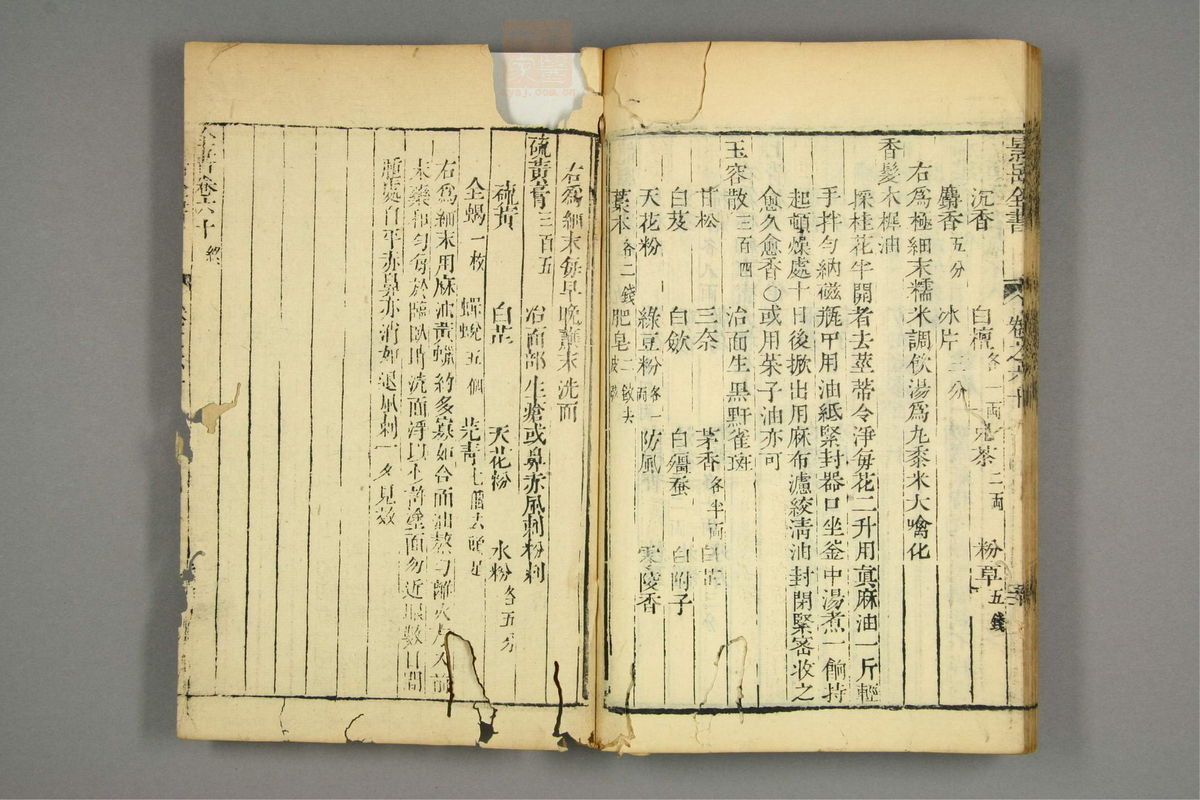 景岳全書 卷之六十
沉香 白檀各一兩 兒茶二兩 粉草五錢
麝香五分 冰片三分
右爲極細末糯米調飲湯爲丸黍米大噙化
香髮木樨油
採桂花半開者去莖蒂令淨每花二升用真麻油一斤輕
手拌勻納磁瓶中用油紙緊封器口坐釜中湯煮一餉持
起頓燥處十日後掀出用麻布濾絞清油封閉緊密收之
愈久愈香○或用茱子油亦可
玉容散三百四 治面生黑䵟雀斑
甘松 三奈 茅香各半兩 白芷
白芨 白歛 白殭蚕 白附子
天花粉 綠豆粉各一兩 防風 零陵香
藁本各二錢 肥皂二
右爲細末每早晚蘸末洗面
硫黃膏三百五 治面部生瘡或鼻赤風刺粉刺
硫黃 白芷 天花粉 水粉各五分
全蝎一枚 蟬蛻五個 芫青七個去頭足
右爲細末用麻油黃蠟約多寡如合面油熬勻離火入前
末藥和勻每於臨臥時洗面淨以少許塗面勿近眼數日間
腫處自平赤鼻亦消如退風刺一夕見效
全書卷六十 終